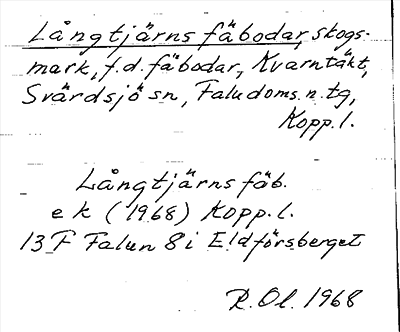 Långtjärns fäbodar, skogs-
mark, f.d. fäbodar, Kvarntäkt,
Svärdsjö sn, Faludoms. n. tg,
Kopp. l.
Långtjärns fäb.
e k (1968) Kopp. l.
13 F Falun 8 i Eldforsberget
R. Ol. 1968